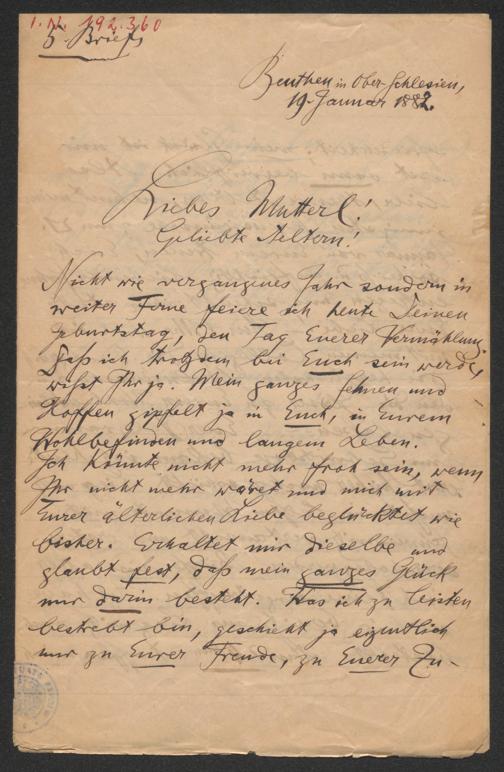 I.N. 192.360
5 Briefe
Beuthen in Ober-Schlesien,
19. Januar 1882.
Liebes Mutterl!
Geliebte Aeltern!
Nicht wie vergangenes Jahr sondern in
weiter Ferne feiere ich heute Deinen
Geburtstag, den Tag Euerer Vermählung
Daß ich trotzdem bei Euch sein werde,
wißt Ihr ja. Mein ganzes Sehnen und
Hoffen gipfelt ja in Euch, in Eurem
Wohlbefinden und langem Leben.
Ich könnte nicht mehr froh sein, wenn
Ihr nicht mehr wäret und mich mit
Eurer älterlichen Liebe beglücktet wie
bisher. Erhaltet mir dieselbe und
glaubt fest, daß mein ganzes Glück
nur darin besteht. Was ich zu leisten
bestrebt bin, geschieht ja eigentlich
nur zu Eurer Freude, zu Euerer Zu-